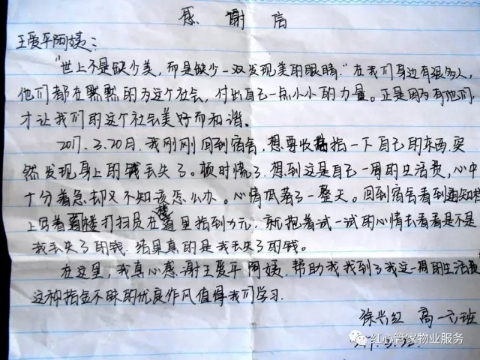 感谢信
王爱平阿姨:
"世上不是缺少美,而是缺少一双发现美的眼睛."在我们身边有很多人,
他们都在默默的为这个社会,付出自己一点小小的力量。正是因为有他们,
才让我们的这个社会美好而和谐。
2017.3.20日,我刚刚回到宿舍,想要收拾一下自己的东西,突
然发现身上的钱丢失了。顿时慌了,想到这是自己一周的生活费,心中
十分着急却又不知该怎么办。心情低落了一整天。回到宿舍看到通知栏
上写着 打扫员在 里拾到 元,就抱着试一试的心情去看看是不是
我丢失了的钱.结果真的是我丢失了的钱。
在这里,我真心感谢王爱平阿姨,帮助我找到了我这一周的生活费
这种拾金不昧的优良作风值得我们学习.
徐 红 高一六班
红 管家物业服务